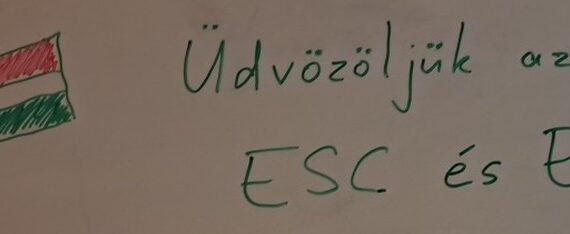 Üdvözöljük az
ESC és E